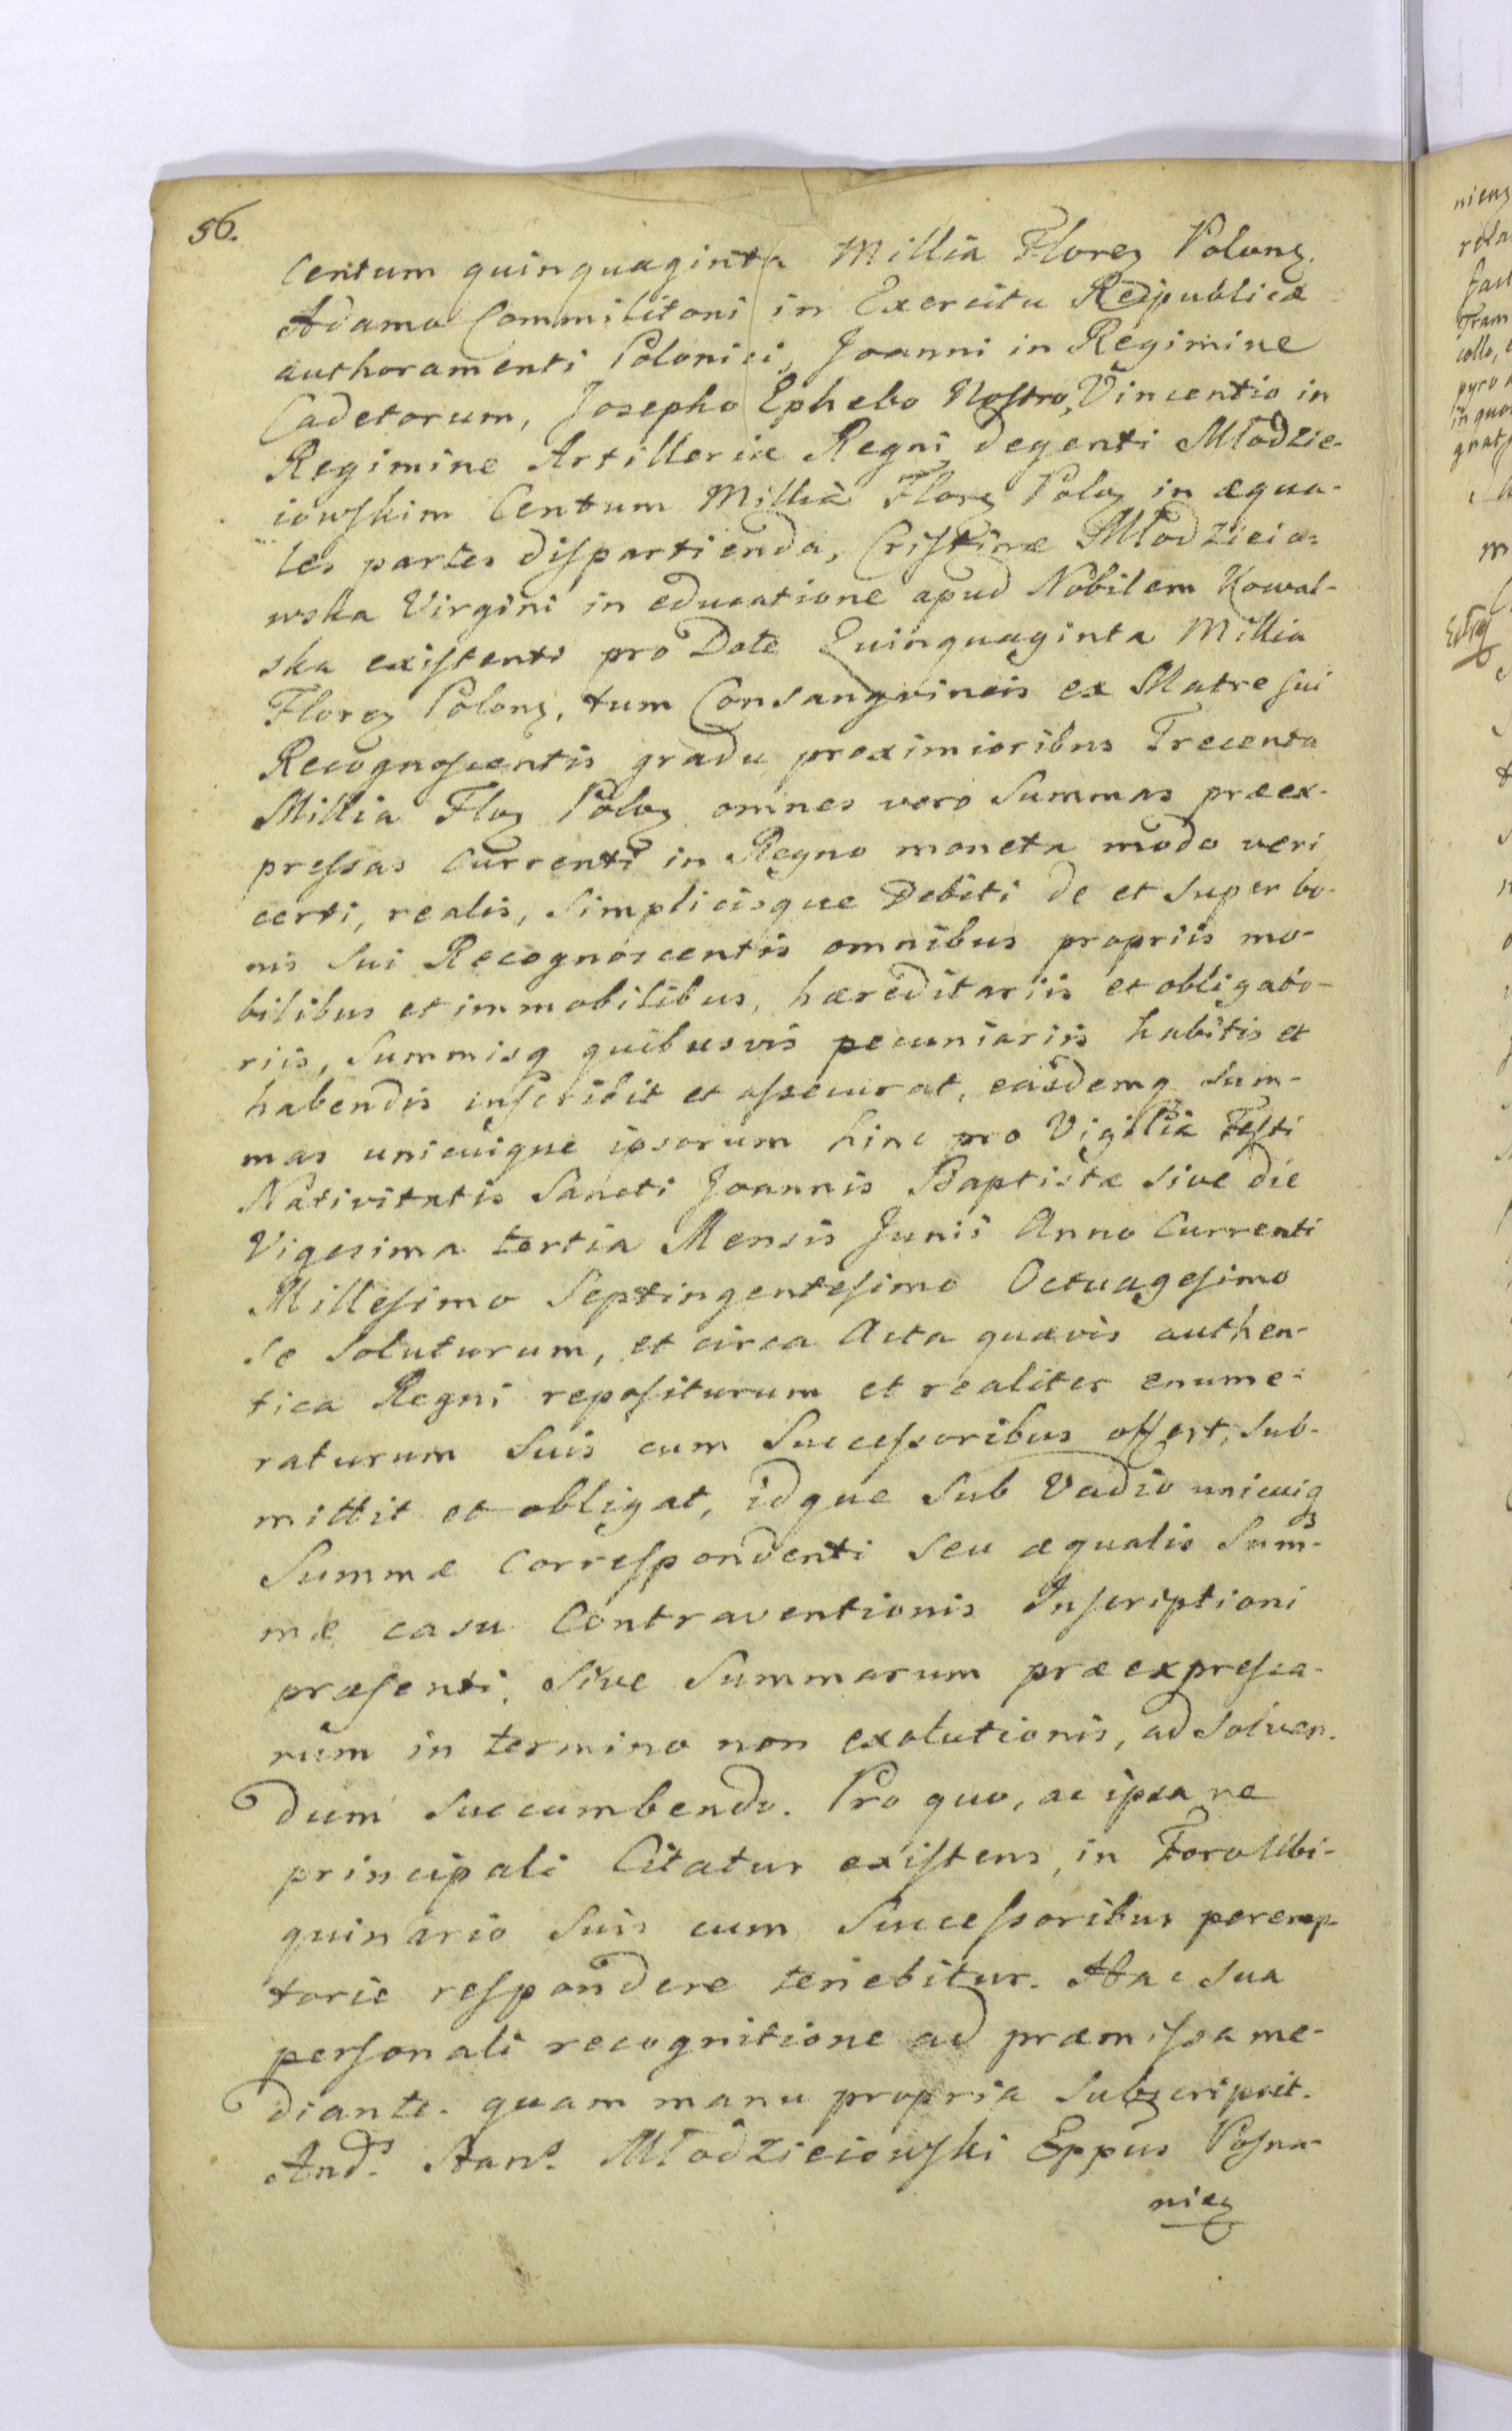 56.
Centum quinquaginta Millia Florez Polonz.
Adamo Commilitoni in Exercitu Reipublicæ
authoramenti Polonici, Joanni in Regimine
Cadetorum, Josepho Ephebo Nostro, Vincentio in
Regimine Artilleriæ Regni degenti Młodzie-
iowskim Centum Millia Florz Poloz in æqua-
les partes dispartienda, Cristinæ Młodzieio-
wska Virgini in educatione apud Nobilem Kowal-
ska existenti pro Dote Quinquaginta Millia
Florez Polonz, tum Consangvineis ex Matre sui
Recognoscentis gradu proximioribus Trecenta
Millia Floz Poloz omnes vero Summas præex-
pressas Currenti in Regno moneta modo veri
certi, realis, Simplicisque Debiti de et Super bo-
nis Sui Recognoscentis omnibus propriis mo-
bilibus et immobilibus, hæreditariis et obligato-
riis, Summisq quibusvis pecuniariis habitis et
habendis inscribit et assecurat, easdemq Sum-
mas unicuique ipsorum hinc pro Vigilia Festi
Nativitatis Sancti Joannis Baptistæ Sive die
Vigesima tertia Mensis Junii Anno Currenti
Millesimo Septingentesimo Octuagesimo
se Soluturum, et circa Acta quævis authen-
tica Regni repositurum et realiter enume-
raturum Suis cum Successoribus offert, Sub-
mittit et obligat, idque Sub Vadio unicuiq
Summæ Correspondenti Seu æqualis Sum-
mæ casu Contraventionis Inscriptioni
præsenti, Sive Summarum præexpressa-
rum in termino non exolutionis, ad Solven-
dum Succumbendo. Pro quo, ac ipsa re
principali Citatus existens, in Foro Ubi-
quinario Suis cum Successoribus peremp-
torie respondere tenebitur. Hac Sua
personali recognitione ad præmissa me-
diante. quam manu propria Subscripsit.
Andˢ. Stanˢ. Młodzieiowski Eppus Posna-
niez